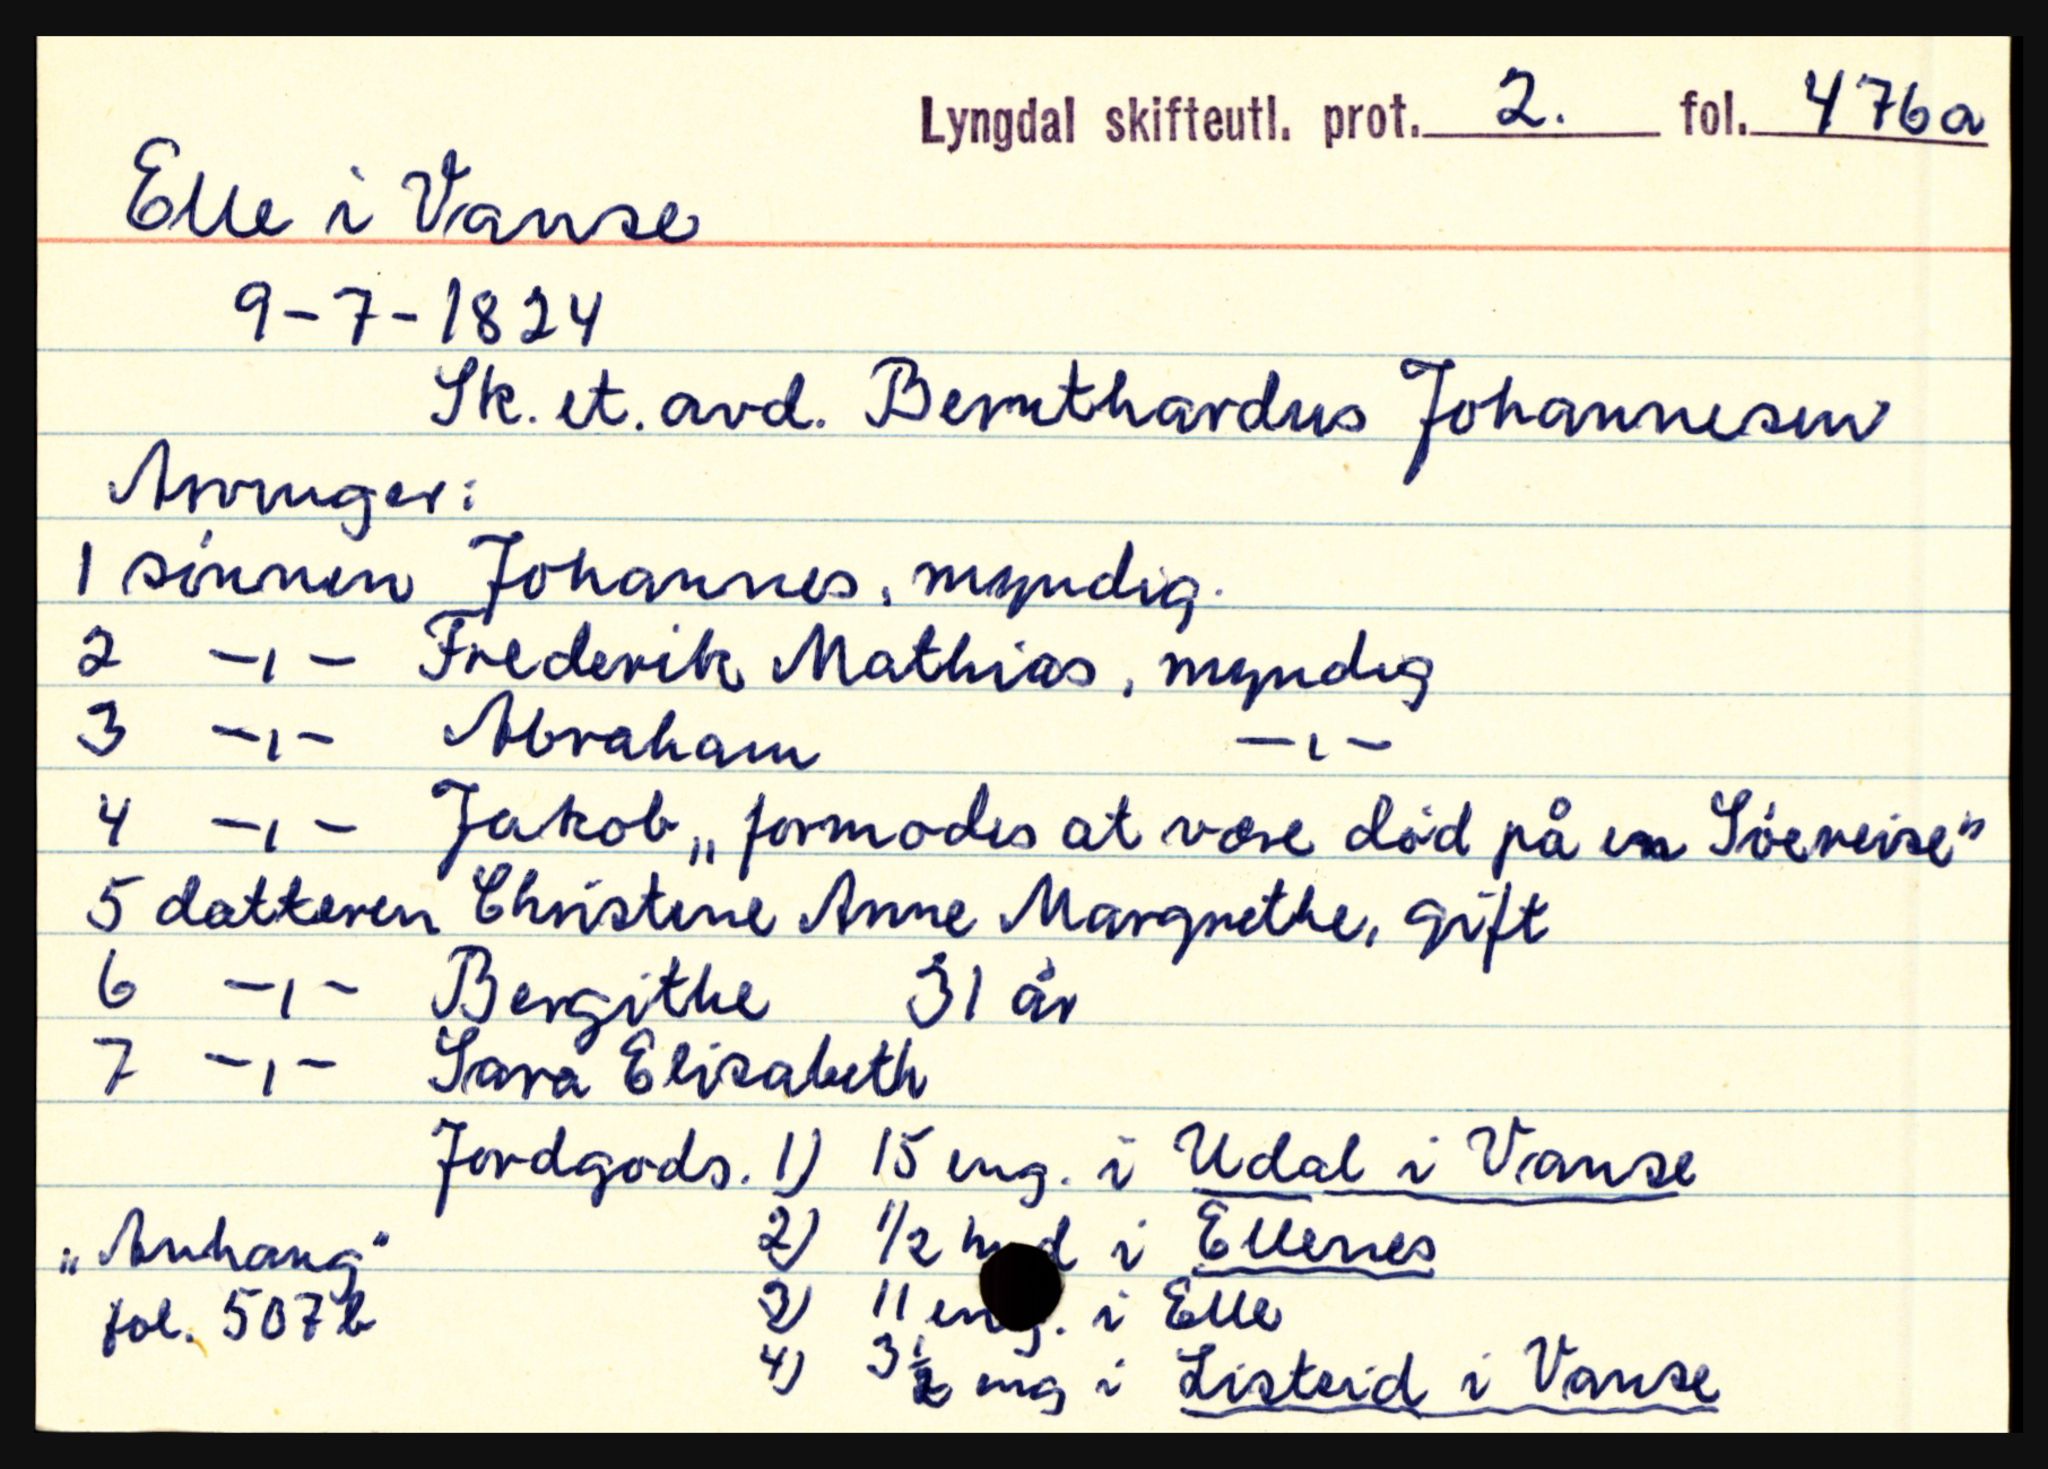 Lyngdal skifteutl. prot. 2. fol. 476a
Elle i Vanse
9-7-1824
Sk. et. avd. Bernthardus Johannesen
Arvinger:
1 sønnen Johannes, myndig.
2 -,- Frederik Mathias, myndig
3 -,- Abraham -,-
4 -,- Jakob „formodes at være død på en Søereise"
5 datteren Christene Anne Margrethe, gift
6 -,- Bergithe 31 år
7 -,- Sara Elisabeth
Jordgods. 1) 15 eng. i Udal i Vanse
2) 1/2 hud i Ellenes
„Anhang"
3) 11 eng. i Elle
fol. 507b
4) 3 1/2 eng i Listeid i Vanse